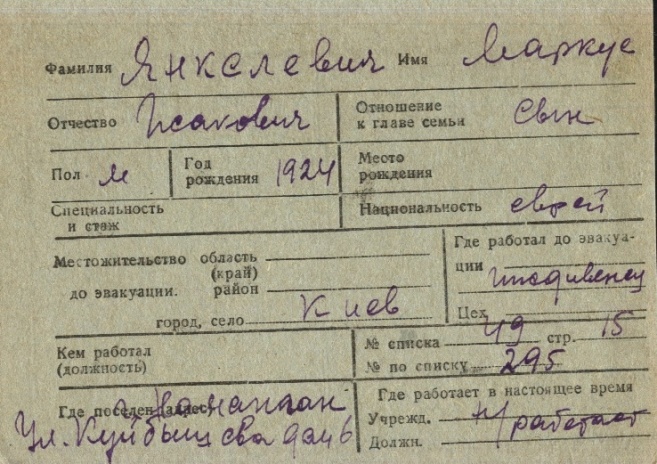 Фамилия Янкелевич Имя Маркус
Отчество Исакович
Отношение
к главе семьи сын
Пол м
Год
рождения 1924
Место
рождения
Специальность
и стаж
Национальность еврей
Местожительство область
(край)
до эвакуации. район
город, село Киев
Где работал до эвакуа-
ции иждивенец
Цех
Кем работал
(должность)
№ списка 49 стр. 15
№ по списку 295
Где поселен (адрес) г. Наманган
Ул. Куйбышева дом 6
Где работает в настоящее время
Учрежд. н/работает
Должн.